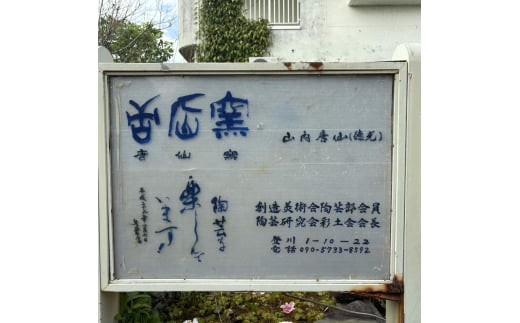 唐仙窯
唐仙窯
陶芸を
楽しんで
います!
山内唐仙(徳光)
創造美術会陶芸部会員
陶芸研究会彩土会会長
登川 1-10-22
電話 090-5733-8592